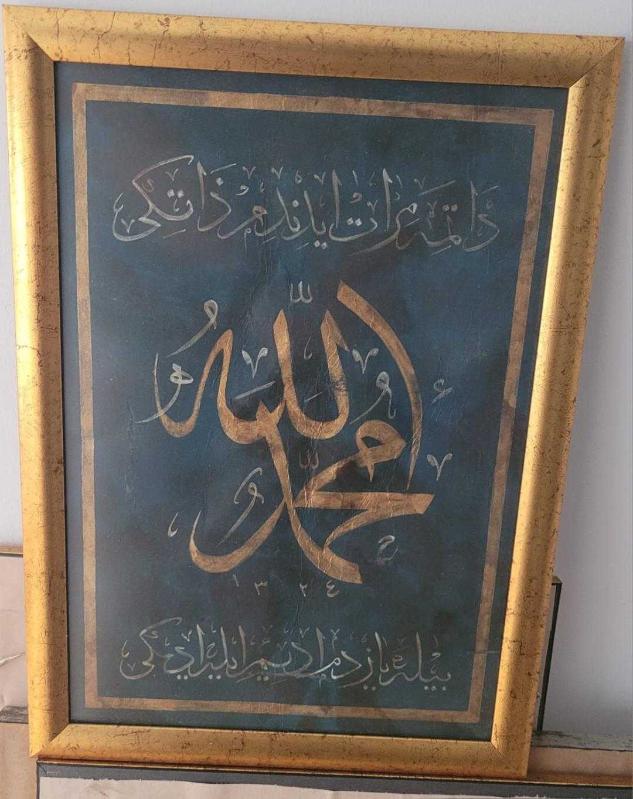 ذَاتمه مرات ايدندم ذاتكى
الله
محمد
١٣٢٤
بيله يازدم اديم ايله اديكى